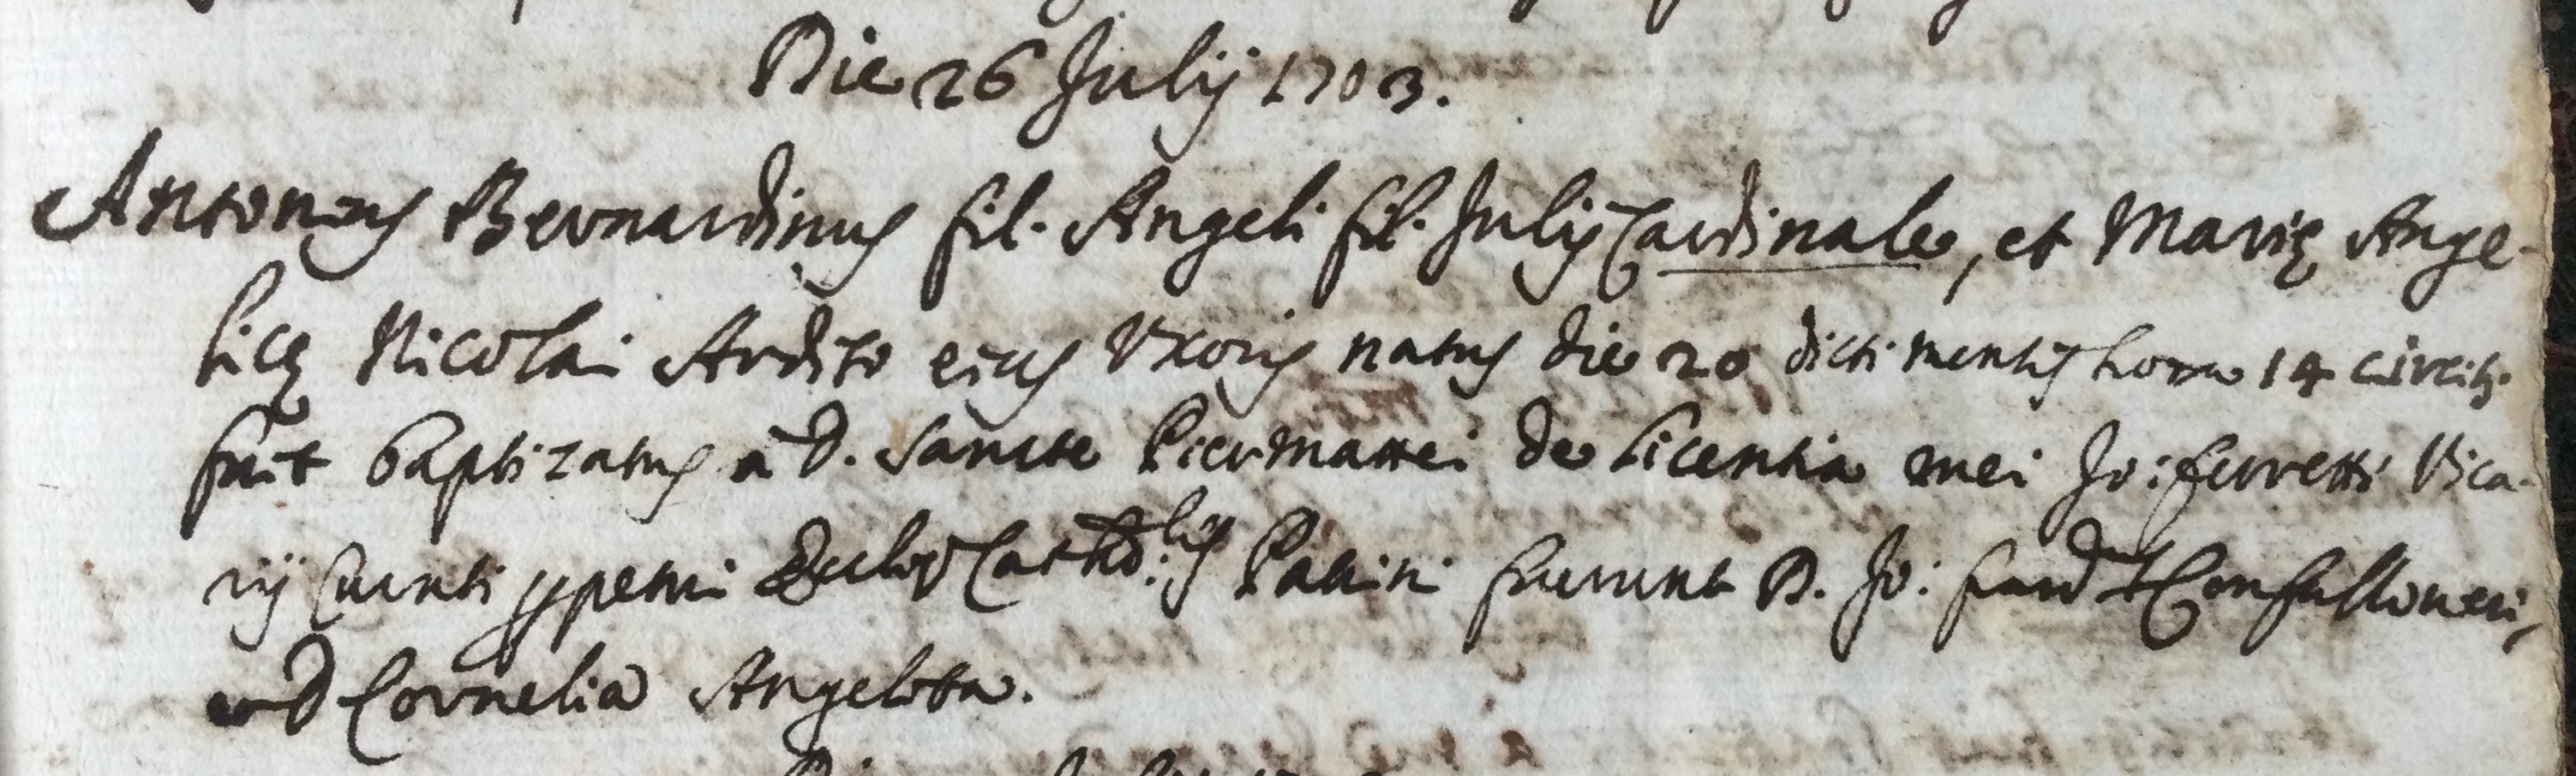 Die 26 Julij 1703.
Antonius Bernardinus fil. Angeli fil. Julij Cardinale, et Marię Ange-
licę Nicolai Ardito eius Uxoris natus die 20 dicti mensis hora 14 circit.
fuit baptizatus à D. Sancte Piermattei de licentia mei Jo: Ferretti Vica-
rij Curati Cath.lis Patrini fuerunt D. Jo: Confallonerij,
et D Cornelia Angelotta.